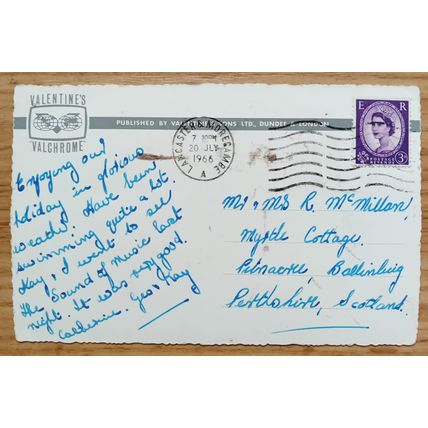 VALENTINE'S
"VALCHROME"
PUBLISHED BY VALENTINE & SONS LTD., DUNDEE & LONDON
LANCASTER & MORECAMBE
7 30PM
20 JLY
1966
A
E R
POSTAGE REVENUE
3D
Enjoying our
holiday in glorious
weather. Have been
swimming quite a lot
Kay & I went to see
The Sound of Music last
night. It was very good.
Catherine. Geo & Kay
Mr & Mrs R. McMillan
Myrtle Cottage.
Ballinluig
Perthshire, Scotland.